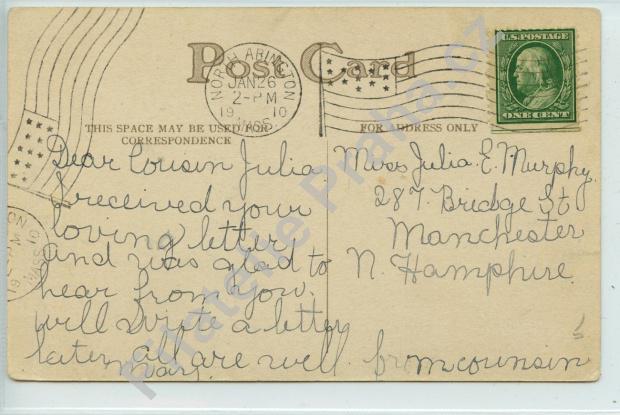 Post Card
U.S. POSTAGE
ONE CENT
NORTH ABINGTON
JAN 26
2-PM
1910
MASS.
THIS SPACE MAY BE USED FOR
CORRESPONDENCE
FOR ADDRESS ONLY
Dear Cousin Julia
I received your
loving letter
and was glad to
hear from you.
will write a letter
later all are well from counsin
Mary
Miss Julia E. Murphy
287 Bridge St
Manchester
N. Hamphire.
TON
PM
1910
MASS.
Filatelie Praha.cz